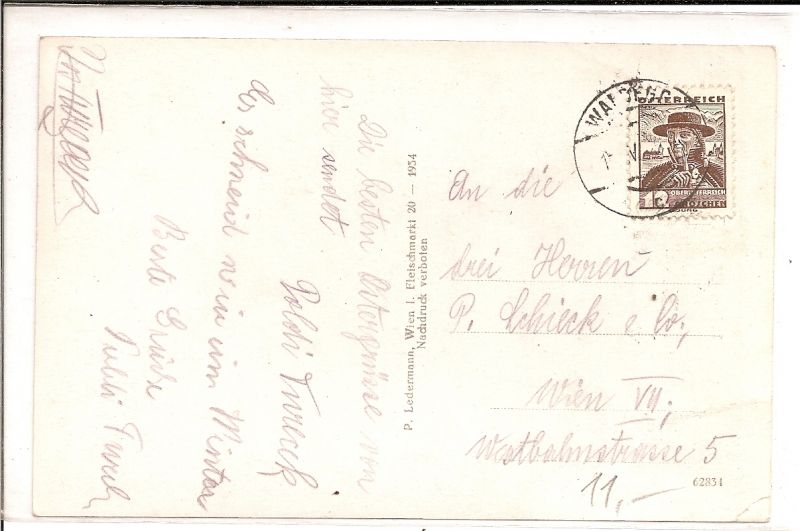 Die besten Ostergrüsse von
hier sendet
Poldi Tureck
Es schneid wie im Winter
Beste Grüße
P. Ledermann, Wien I, Fleischmarkt 20 — 1934
Nachdruck verboten
WALDEGG
ÖSTERREICH
OBERÖSTERREICH
12 GROSCHEN
An die
drei Herren
P. Schieck & Co,
Wien VII,
Westbahnstrasse 5
11,—
62834